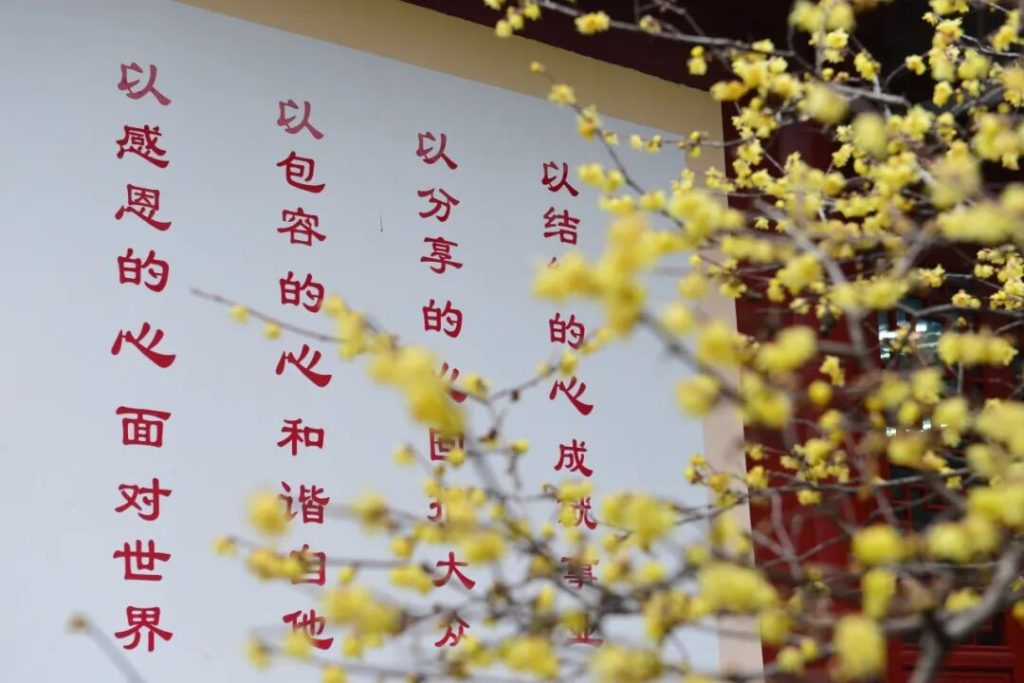 以感恩的心面对世界
以包容的心和谐自他
以分享的心回报大众
以结的心成就事业